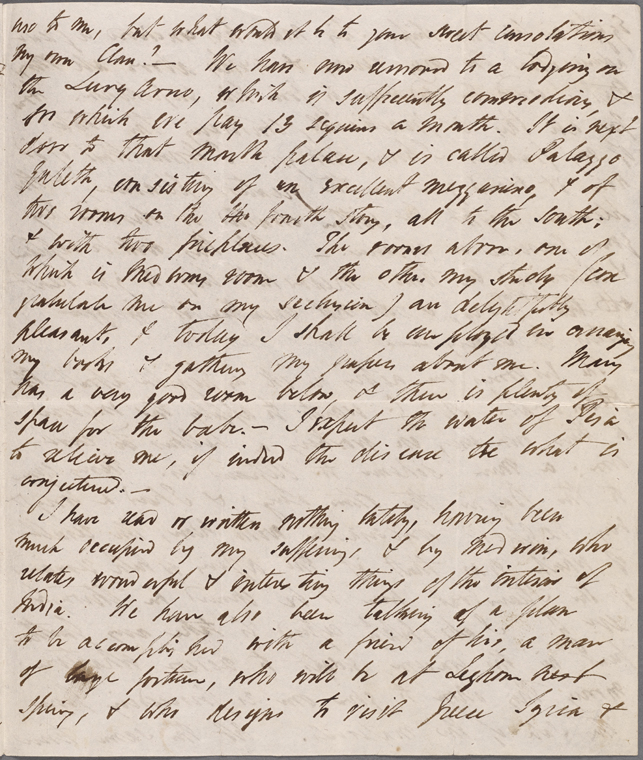 use to me, but what would it be to your sweet consolations
my own Clare? — We have now removed to a lodging on
the Lung Arno, which is sufficiently commodious, &
for which we pay 13 sequins a month. It is next
door to that marble palace, & is called Palazzo
consisting of an excellent mezzanino, & of
two rooms on the fourth story, all to the south,
& with two fireplaces. The rooms above, one of
which is Medwins room & the other my study (con
gratulate me on my seclusion) are delightfully
pleasant, & today I shall be employed in arranging
my books & gathering my papers about me. Mary
has a very good room below, & there is plenty of
space for the babe. — I expect the water of Pisa
to relieve me, if indeed the disease be what is
conjectured. —
I have read or written nothing lately, having been
much occupied by my sufferings, & by Medwin, who
relates wonderful & interesting things of the interior of
India. We have also been talking of a plan
to be accomplished with a friend of his, a man
of large fortune, who will be at Leghorn next
Spring, & who designs to visit Greece Syria &